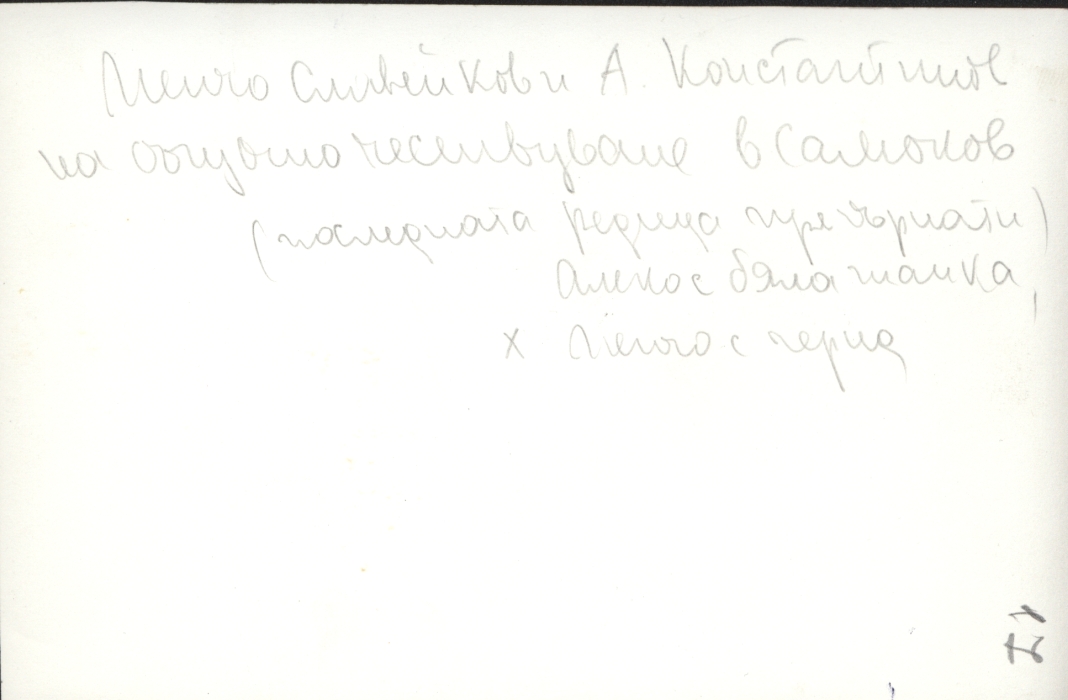 Пенчо Славейков и А. Константинов
на събудно честване в Самоков
(последната редица прегърнати)
Алеко с бяла шапка,
х Пенчо с черна